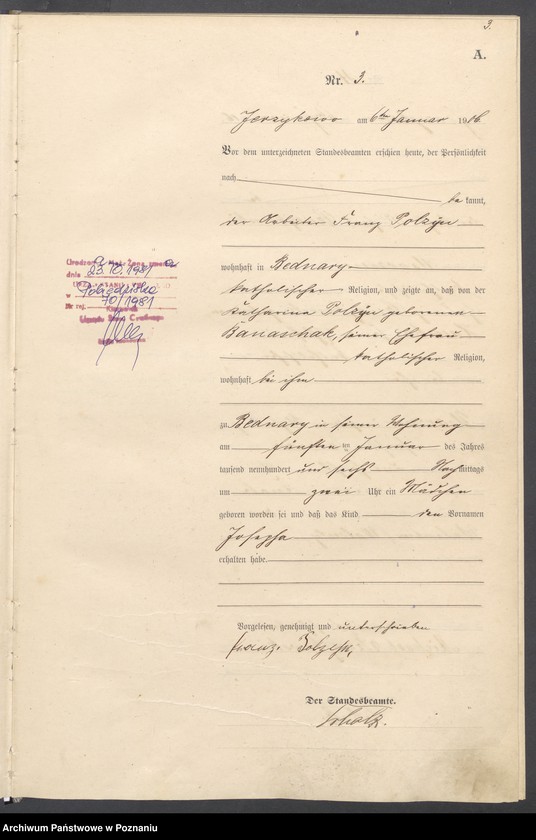 3.
A.
Nr. 3.
Jerzykowo am 6ten Januar 1906.
Vor dem unterzeichneten Standesbeamten erschien heute, der Persönlichkeit
nach
be kannt,
der Arbeiter Franz Polzyn
wohnhaft in Bednary
katholischer Religion, und zeigte an, daß von der
Katharina Polzyn geborenen
Banaschak, seiner Ehefrau
katholischer Religion,
wohnhaft bei ihm
zu Bednary in seiner Wohnung
am fünften ten Januar des Jahres
tausend neunhundert und sechs Nachmittags
um zwei Uhr ein Mädchen
geboren worden sei und daß das Kind den Vornamen
Josepha
erhalten habe.
Vorgelesen, genehmigt und unterschrieben
Franz
Der Standesbeamte.
23.10.1981
w Pobiedziska
Nr rej. 70/1981
Kierownik
Urzędu Stanu Cywilnego
Archiwum Państwowe w Poznaniu